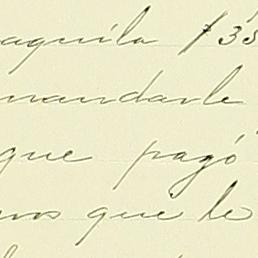 aquila $35
mandarle
que pagó
nos que le